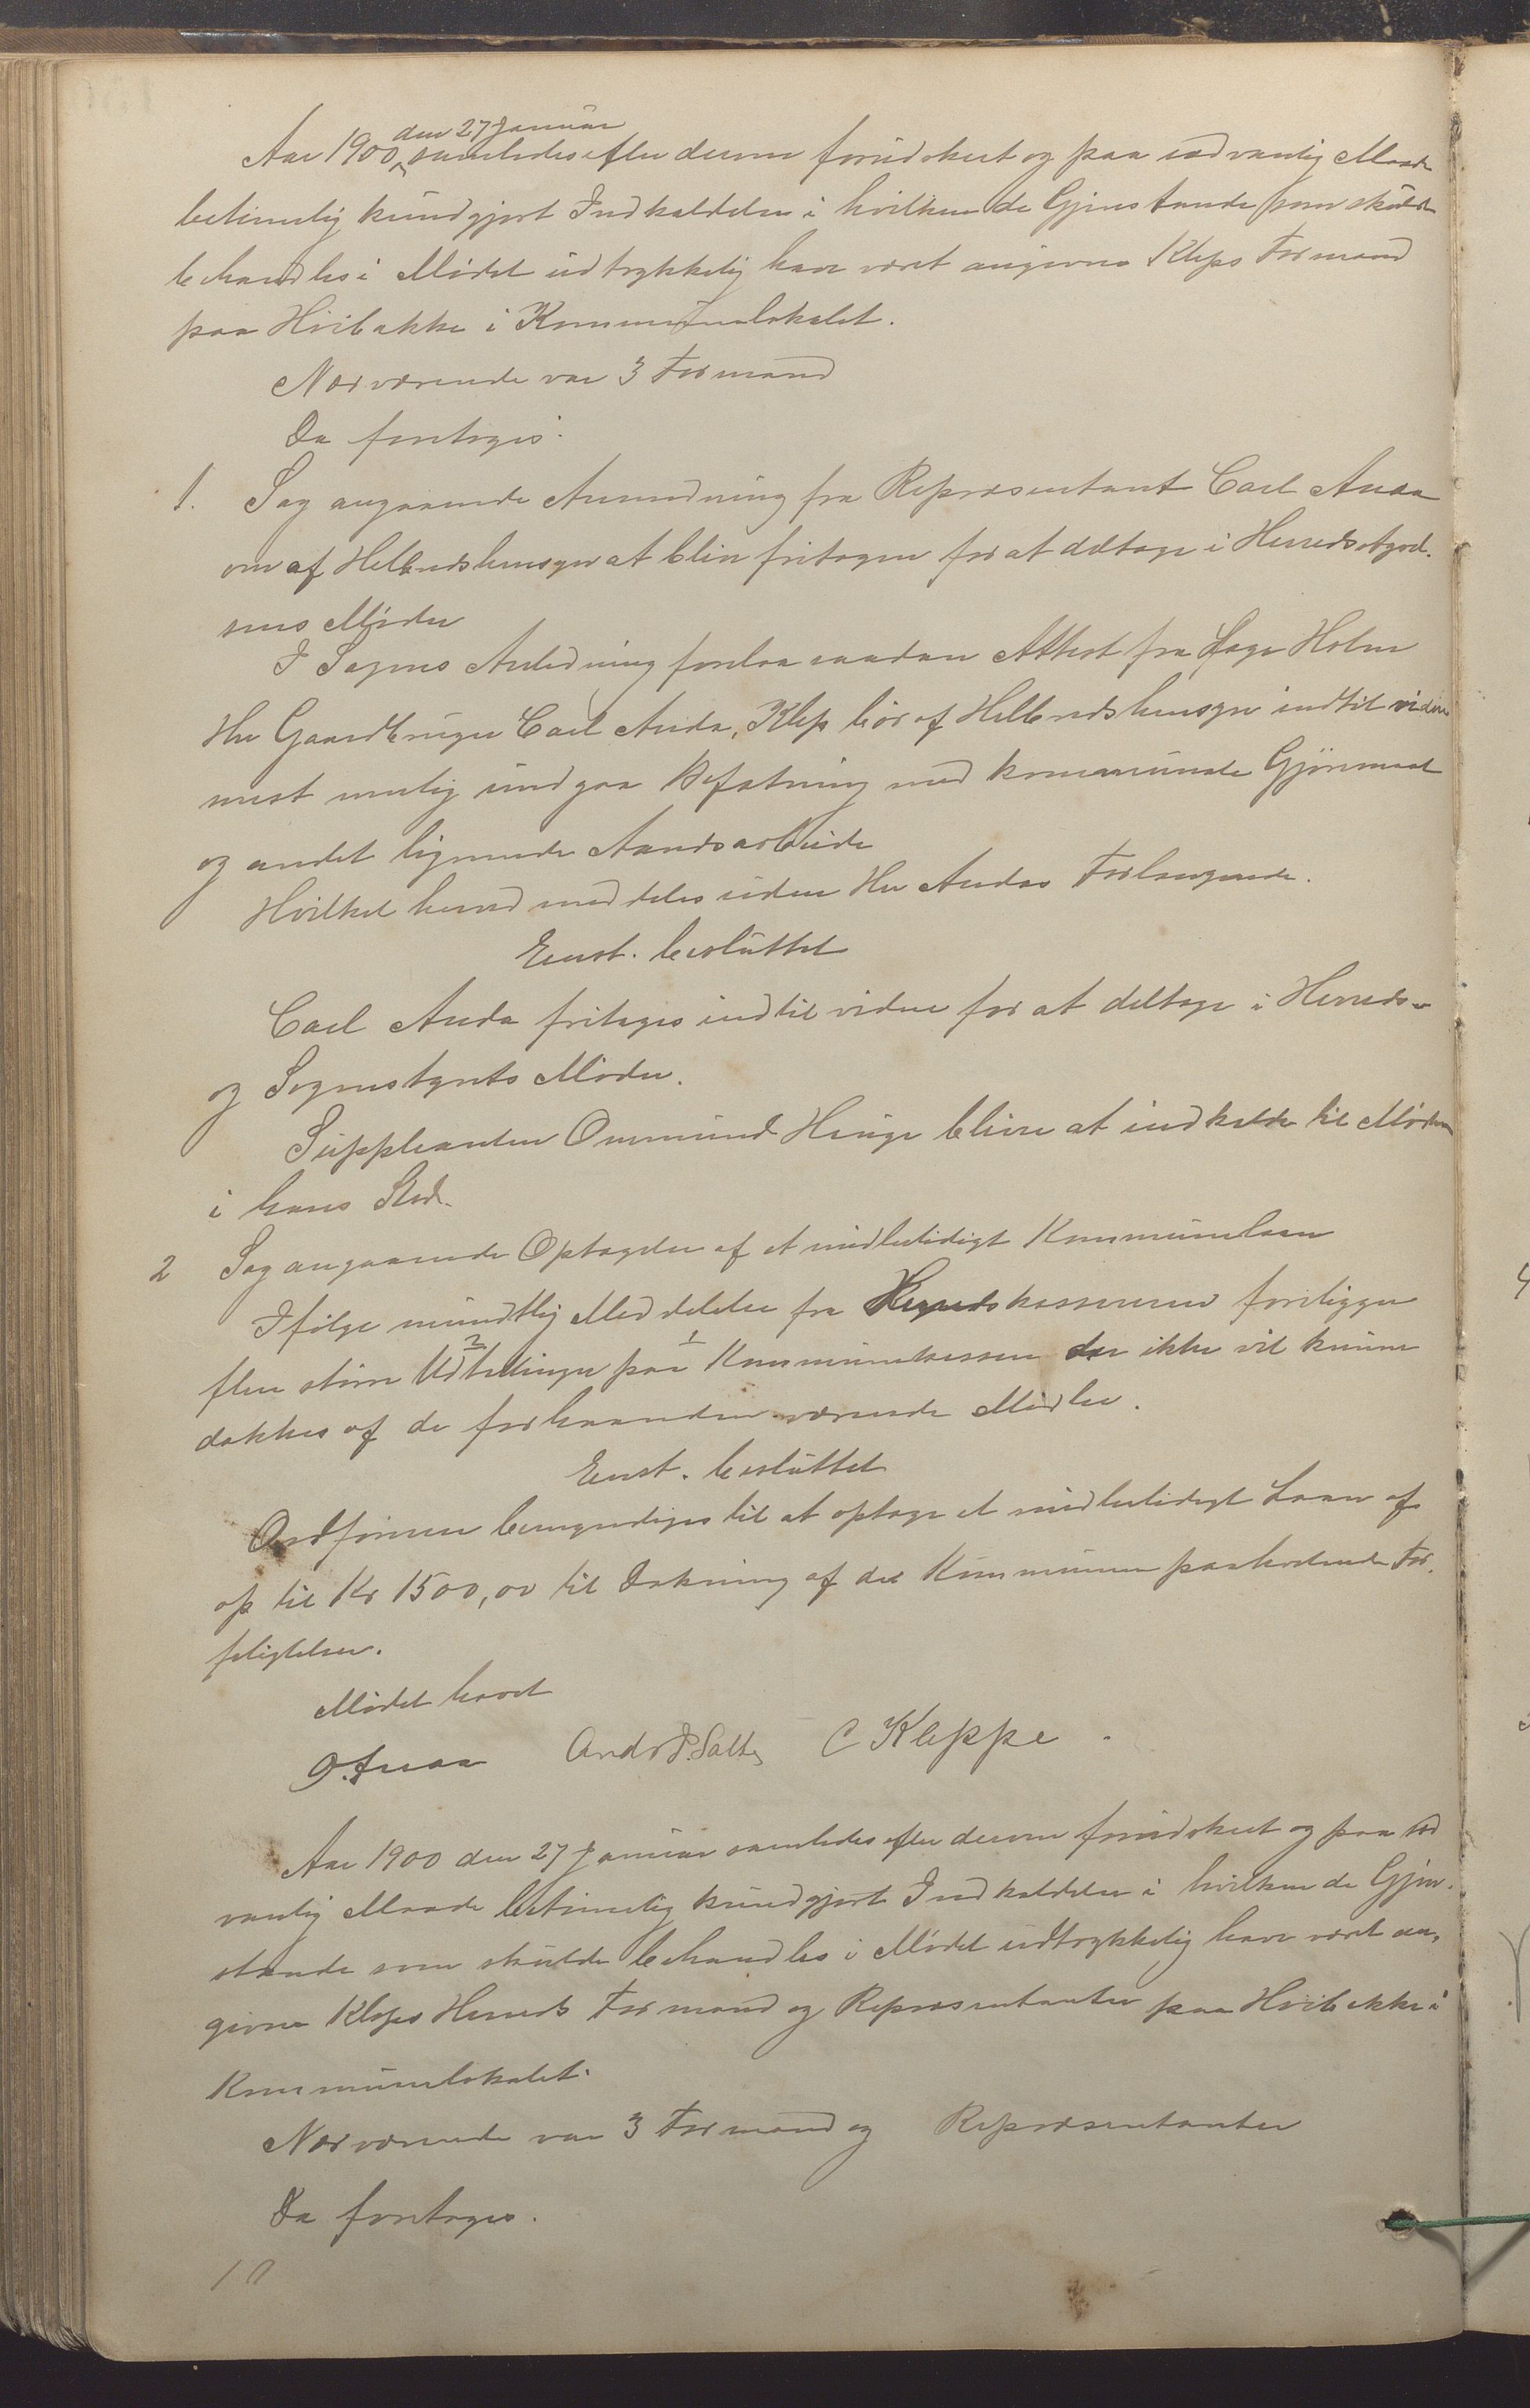 den 27 Januar
Aar 1900 samledes efter derom forudskeet og paa sædvanlig Maade
betimelig kundgjort Indkaldelse i hvilken de Gjenstande som skulde
behandles i Mødet udtrykkelig have været angivne Kleps Formænd
paa Hvilbakke i Kommunelokalet.
Nærværende var 3 Formænd
Da foretoges:
1. Sag angaaende Anmodning fra Repræsentant Carl Anda
om af Helbredshensyn at blive fritagen for at deltage i Herredsstyrel-
sens Møder
I Sagens Anledning forelaa saadan Attest fra Læge Holm
Hr Gaardbruger Carl Anda, Klep bør af Helbredshensyn indtil videre
mest mulig undgaa Befatning med kommunale Gjøremaal
og andet lignende Aandsarbeide
Hvilket herved meddeles efter Hr Andas Forlangende.
Enst. besluttet
Carl Anda fritages indtil videre for at deltage i Herreds-
og Sognestyrets Møder.
Suppleanten Ommund Hauge bliver at indkalde til Møderne
i hans Sted.
2 Sag angaaende Optagelse af et midlertidigt Kommunelaan
Ifølge mundtlig Meddelelse fra Herredskassereren foreligger
flere større Udtællinger paa Kommunekassen der ikke vil kunne
dækkes af de forhaanden værende Midler.
Enst. besluttet
Ordføreren bemyndiges til at optage et midlertidigt Laan af
op til Kr 1500,00 til Dækning af det Kommunen paahvilende For-
pligtelser.
Mødet hævet
O. Anda Ands J. Salte C Kleppe.
Aar 1900 den 27 Januar samledes efter derom forudskeet og paa sæd
vanlig Maade betimelig kundgjort Indkaldelse i hvilken de Gjen-
stande som skulde behandles i Mødet udtrykkelig have været an-
givne Kleps Herreds Formænd og Repræsentanter paa Hvilbakke i
Kommunelokalet.
Nærværende var 3 Formænd og Repræsentanter
Da foretoges.